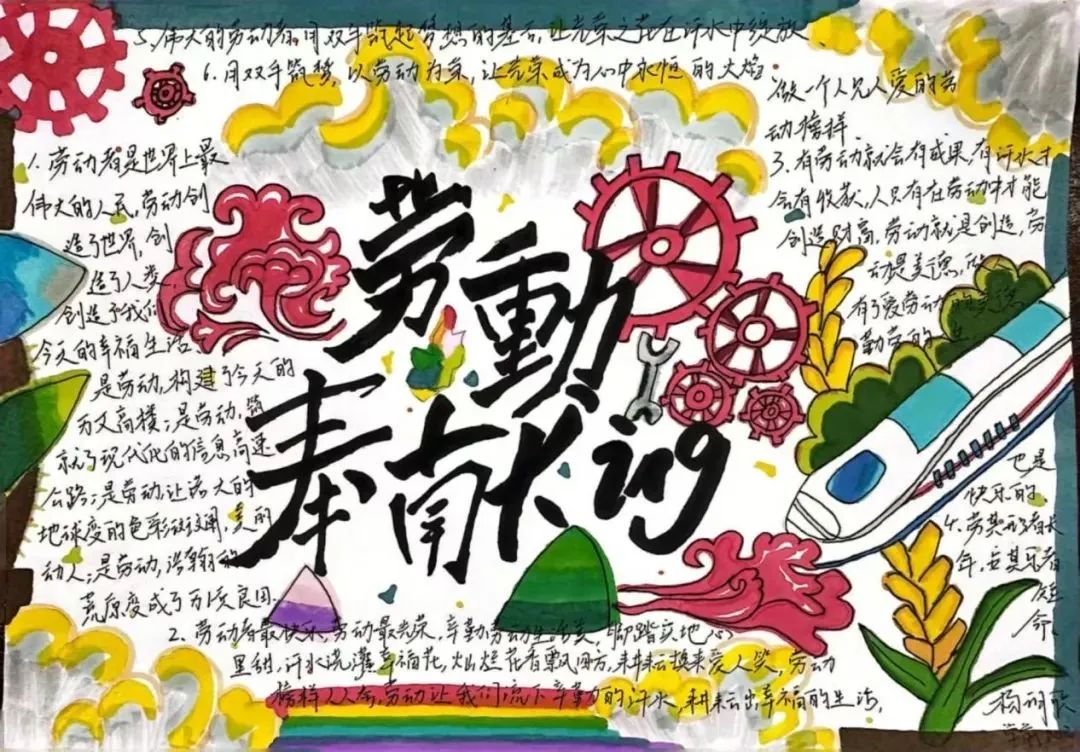 5、伟大的劳动者,用双手筑起梦想的基石,让光荣之花在汗水中绽放、
6、用双手筑梦,以劳动为荣,让光荣成为心中永恒的火焰
1、劳动者是世界上最
伟大的人民,劳动创
造了世界,创
造了人类,
创造了我们
今天的幸福生活、
是劳动,构建了今天的
万丈高楼;是劳动,筑
就了现代化的信息高速
公路;是劳动,让诺大的
地球变的色彩斑斓,美的
动人;是劳动,浩瀚的
荒原变成了万顷良田.
劳動
奉献ing
做一个人见人爱的劳
动榜样
3、有劳动就会有成果,有汗水才
会有收获,人只有在劳动中才能
创造财富,劳动就是创造,劳
动是美德,
有了爱劳动的美德
勤劳的
也是
快乐的、
4、劳其形者长
年,安其乐者
短
命、
2、劳动者最快乐,劳动最光荣,辛勤劳动生活美,脚踏实地心
里甜,汗水浇灌幸福花,灿烂花香飘四方,耕耘换来爱人笑,劳动
榜样人人夸,劳动让我们流下辛勤的汗水,耕耘出幸福的生活,
杨